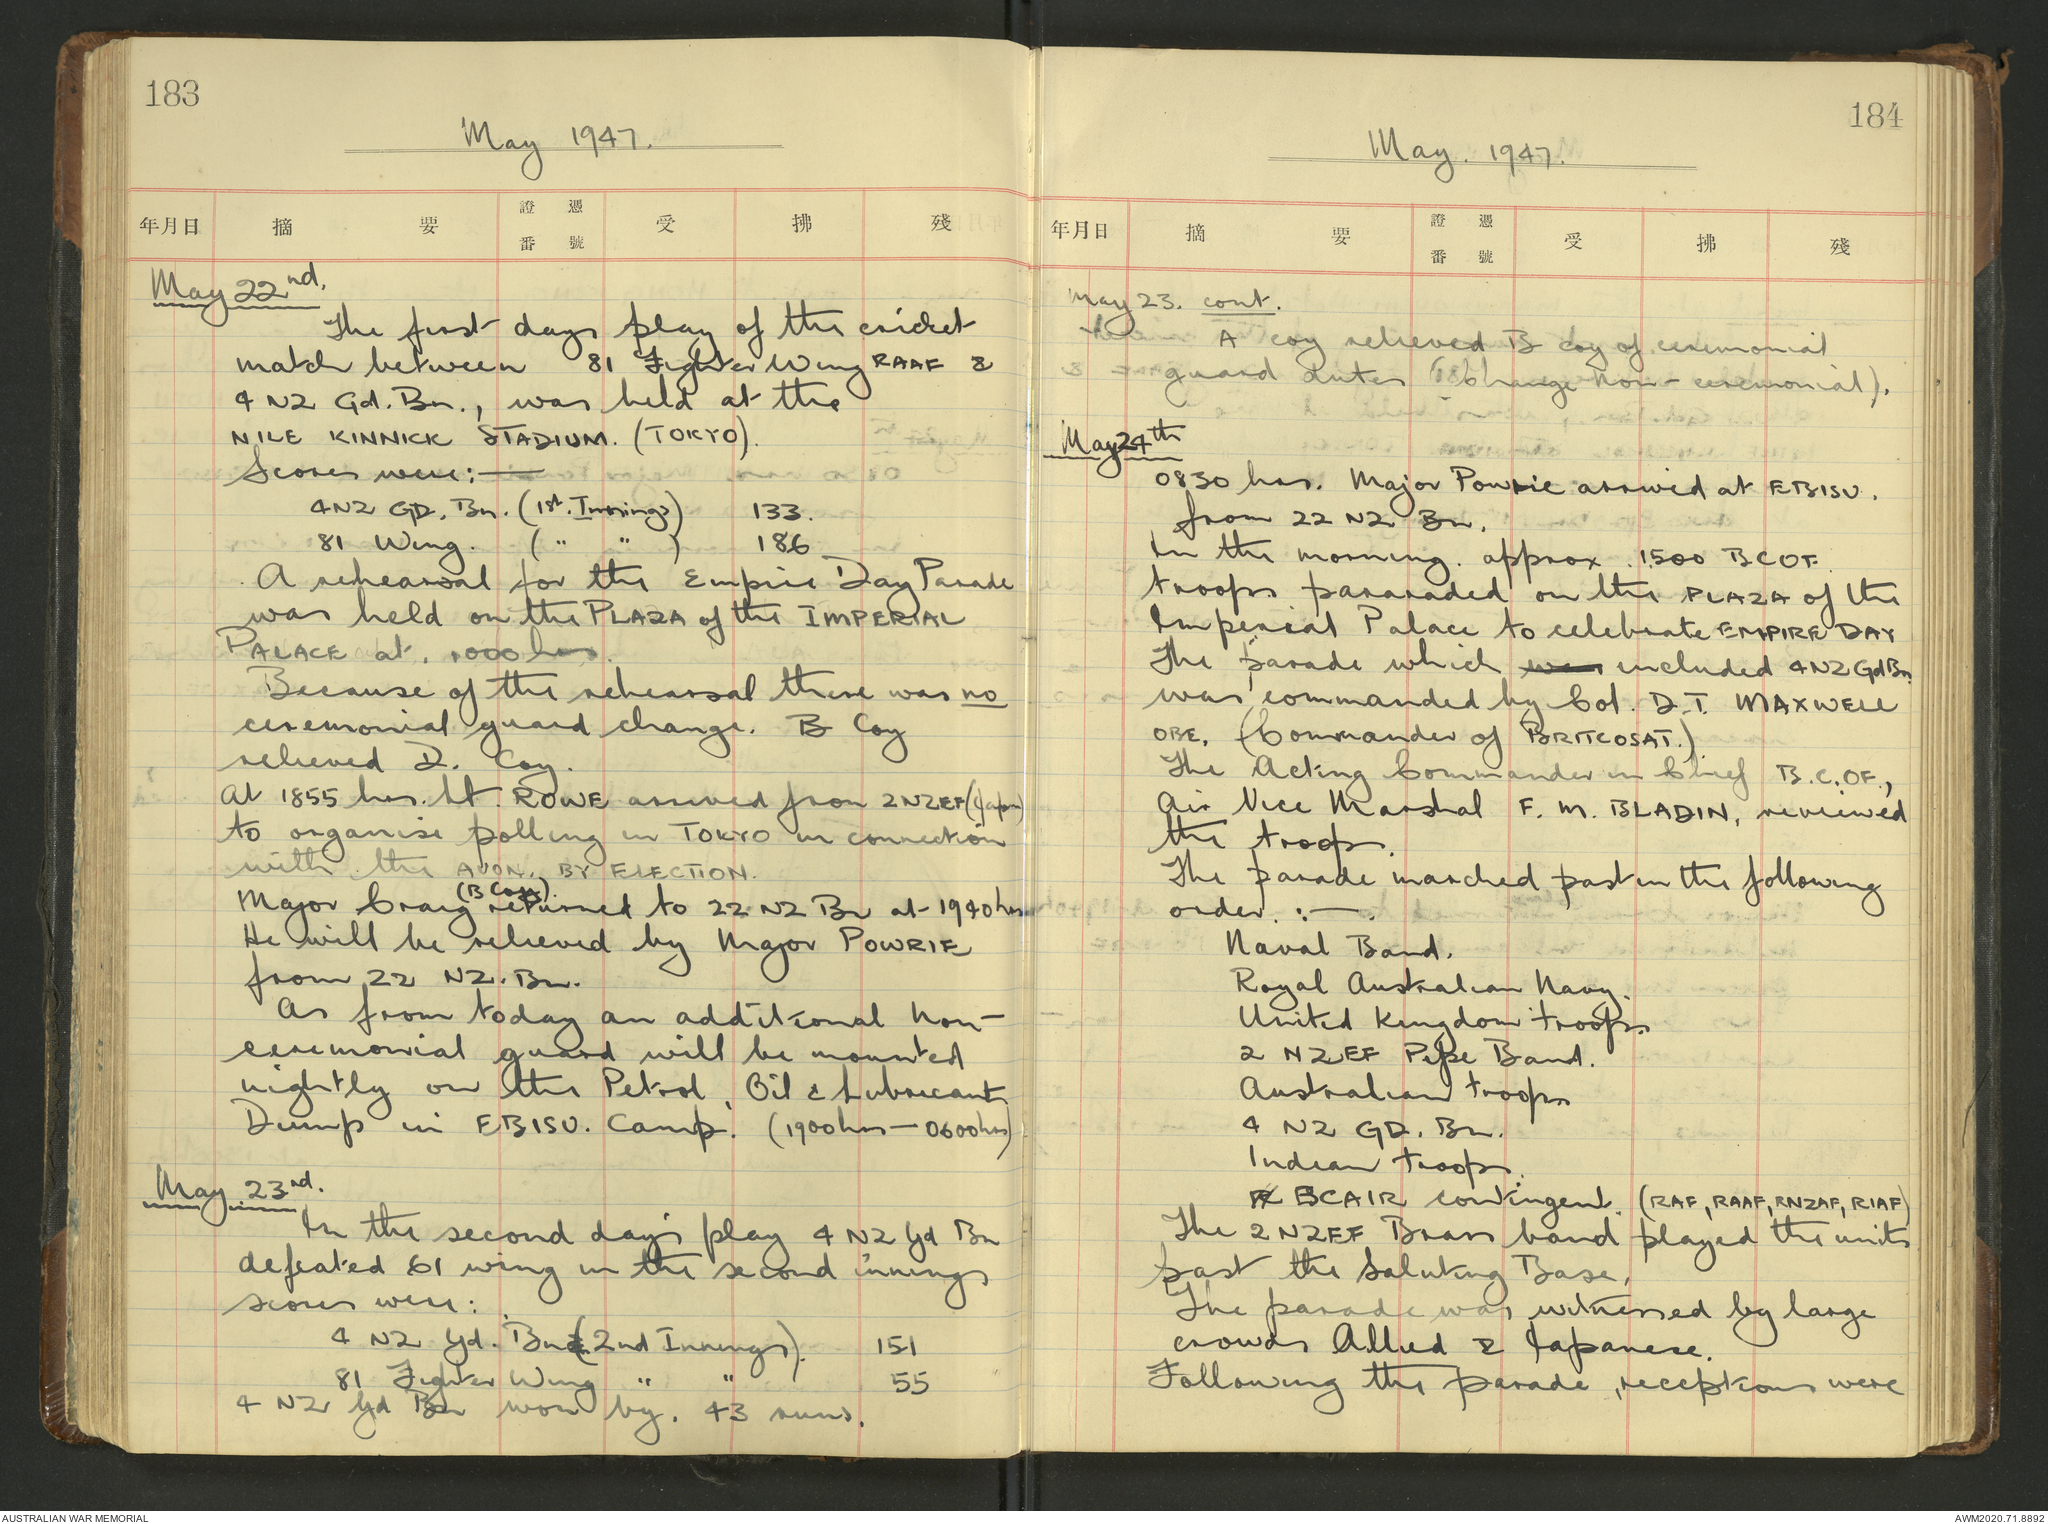 183
May 1947.
年月日 摘要 證憑番號 受 拂 殘
May 22nd.
The first days play of the cricket
match between 81 Fighter Wing RAAF &
4 NZ Gd. Bn., was held at the
NILE KINNICK STADIUM. (TOKYO).
Scores were:—
4NZ GD. Bn. (1st. Innings) 133.
81 Wing. ( " " ) 186
A rehearsal for the Empire Day Parade
was held on the PLAZA of the IMPERIAL
PALACE at 1000 hrs.
Because of the rehearsal there was no
ceremonial guard change. B Coy
relieved D. Coy.
At 1855 hrs. Lt. ROWE arrived from 2NZEF (Japan)
to organise polling in TOKYO in connection
with the AVON. BY ELECTION.
Major Craig (B Coy). returned to 22 NZ Bn at 1940 hrs
He will be relieved by Major POWRIE
from 22 NZ. Bn.
As from today an additional non-
ceremonial guard will be mounted
nightly on the Petrol, Oil & Lubricants
Dump in EBISU. Camp. (1900hrs — 0600hrs)
May 23nd.
In the second day's play 4 NZ Gd Bn
defeated 81 wing in the second innings
scores were:
4 NZ Gd. Bn (2nd Innings). 151
81 Fighter Wing " " 55
4 NZ Gd Bn won by. 43 runs.
184
May. 1947.
年月日 摘要 證憑番號 受 拂 殘
May 23. cont.
A coy relieved B coy of ceremonial
guard duties (change non-ceremonial).
May 24th
0830 hrs. Major Powrie arrived at EBISU.
from 22 NZ Bn.
In the morning. approx. 1500 BCOF.
troops pararaded on the PLAZA of the
Imperial Palace to celebrate EMPIRE DAY
The parade which was included 4NZ Gd Bn.
was commanded by Col. D.T. MAXWELL
OBE. (Commander of BRITCOSAT.)
The Acting Commander in Chief B.C.OF.,
Air Vice Marshal F. M. BLADIN, reviewed
the troops.
The parade marched past in the following
order. :—.
Naval Band.
Royal Australian Navy.
United Kingdom troops.
2 NZEF Pipe Band.
Australian troops
4 NZ GD. Bn.
Indian troops.
BCAIR contingent. (RAF, RAAF, RNZAF, RIAF)
The 2 NZEF Brass band played the units
past the Saluting Base.
The parade was witnessed by large
crowds Allied & Japanese.
Following the parade, receptions were
AUSTRALIAN WAR MEMORIAL
AWM2020.71.8892